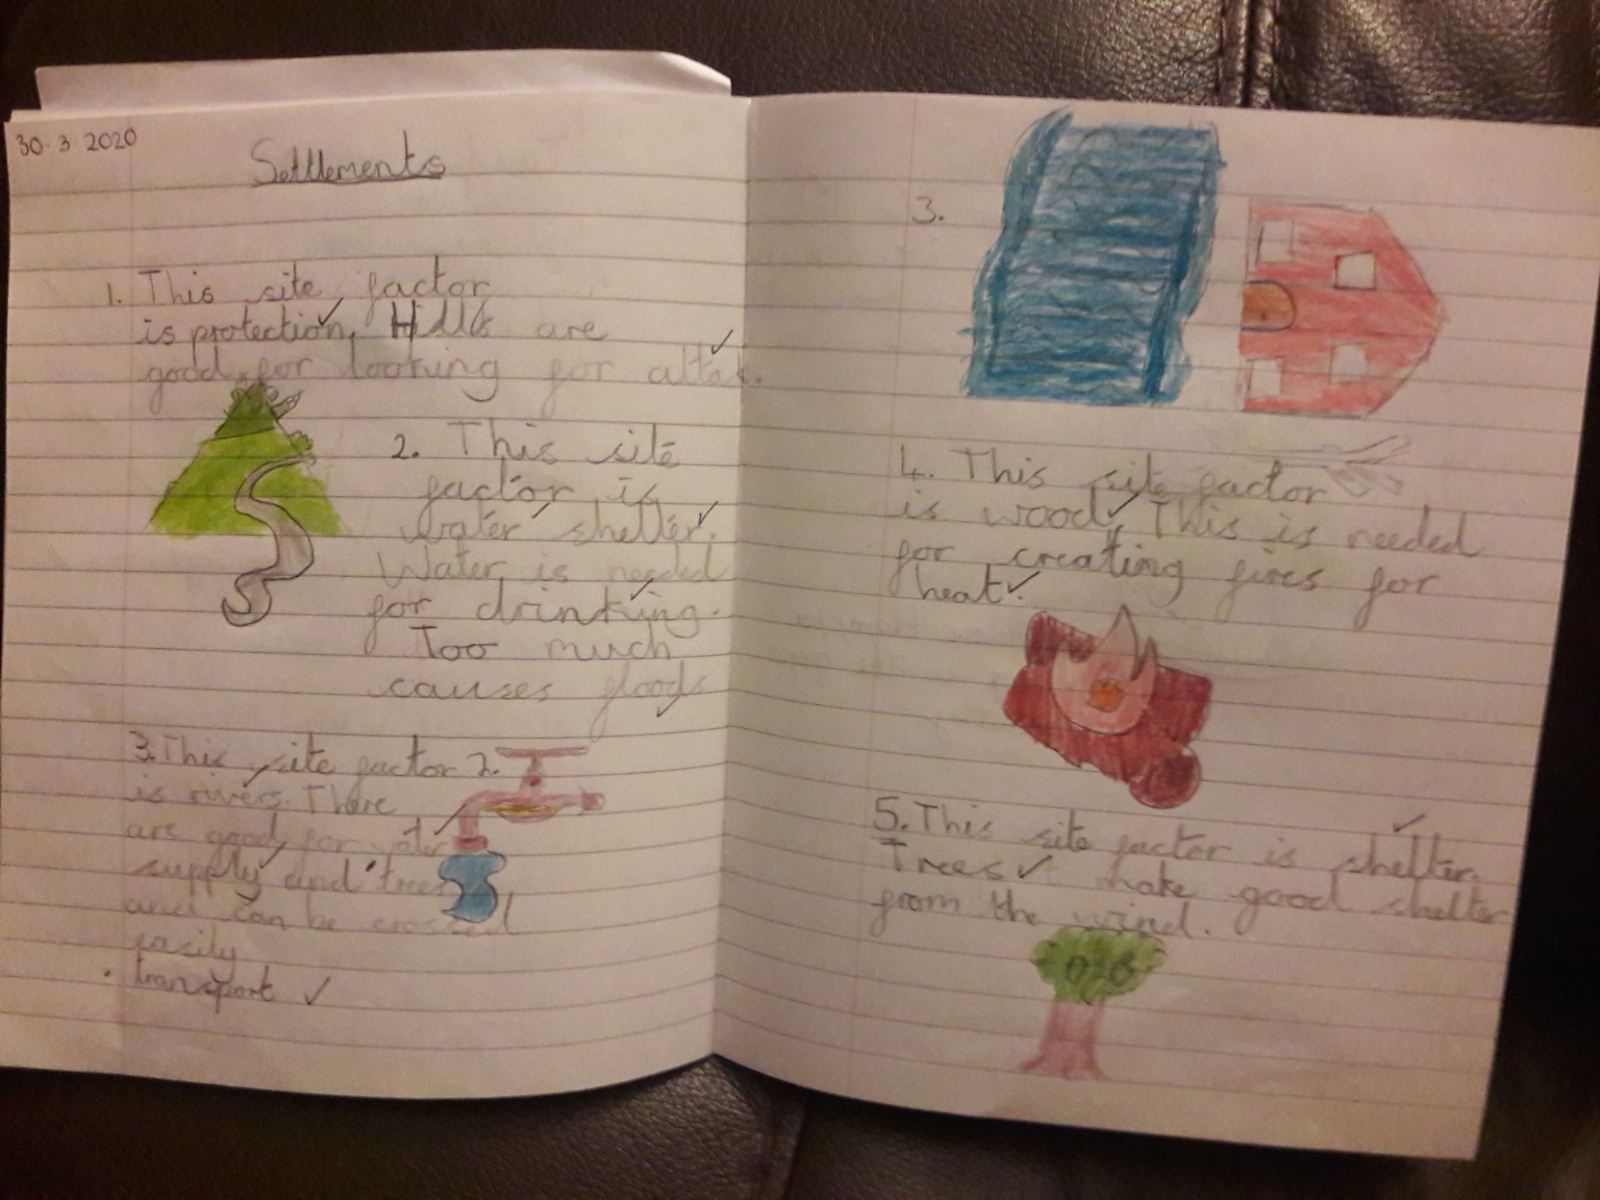 30.3.2020
Settlements
1. This site factor
is protection. Hills are
good for looking for attak.
2. This site
factor is
water shelter.
Water is needed
for drinking.
Too much
causes floods
3. This site factor
is rivers. There
are good for water
supply and trees
and can be crossed
easily
. transport
2.
3.
4. This site factor
is wood. This is needed
for creating fires for
heat.
5. This site factor is shelter.
Trees make good shelter
from the wind.